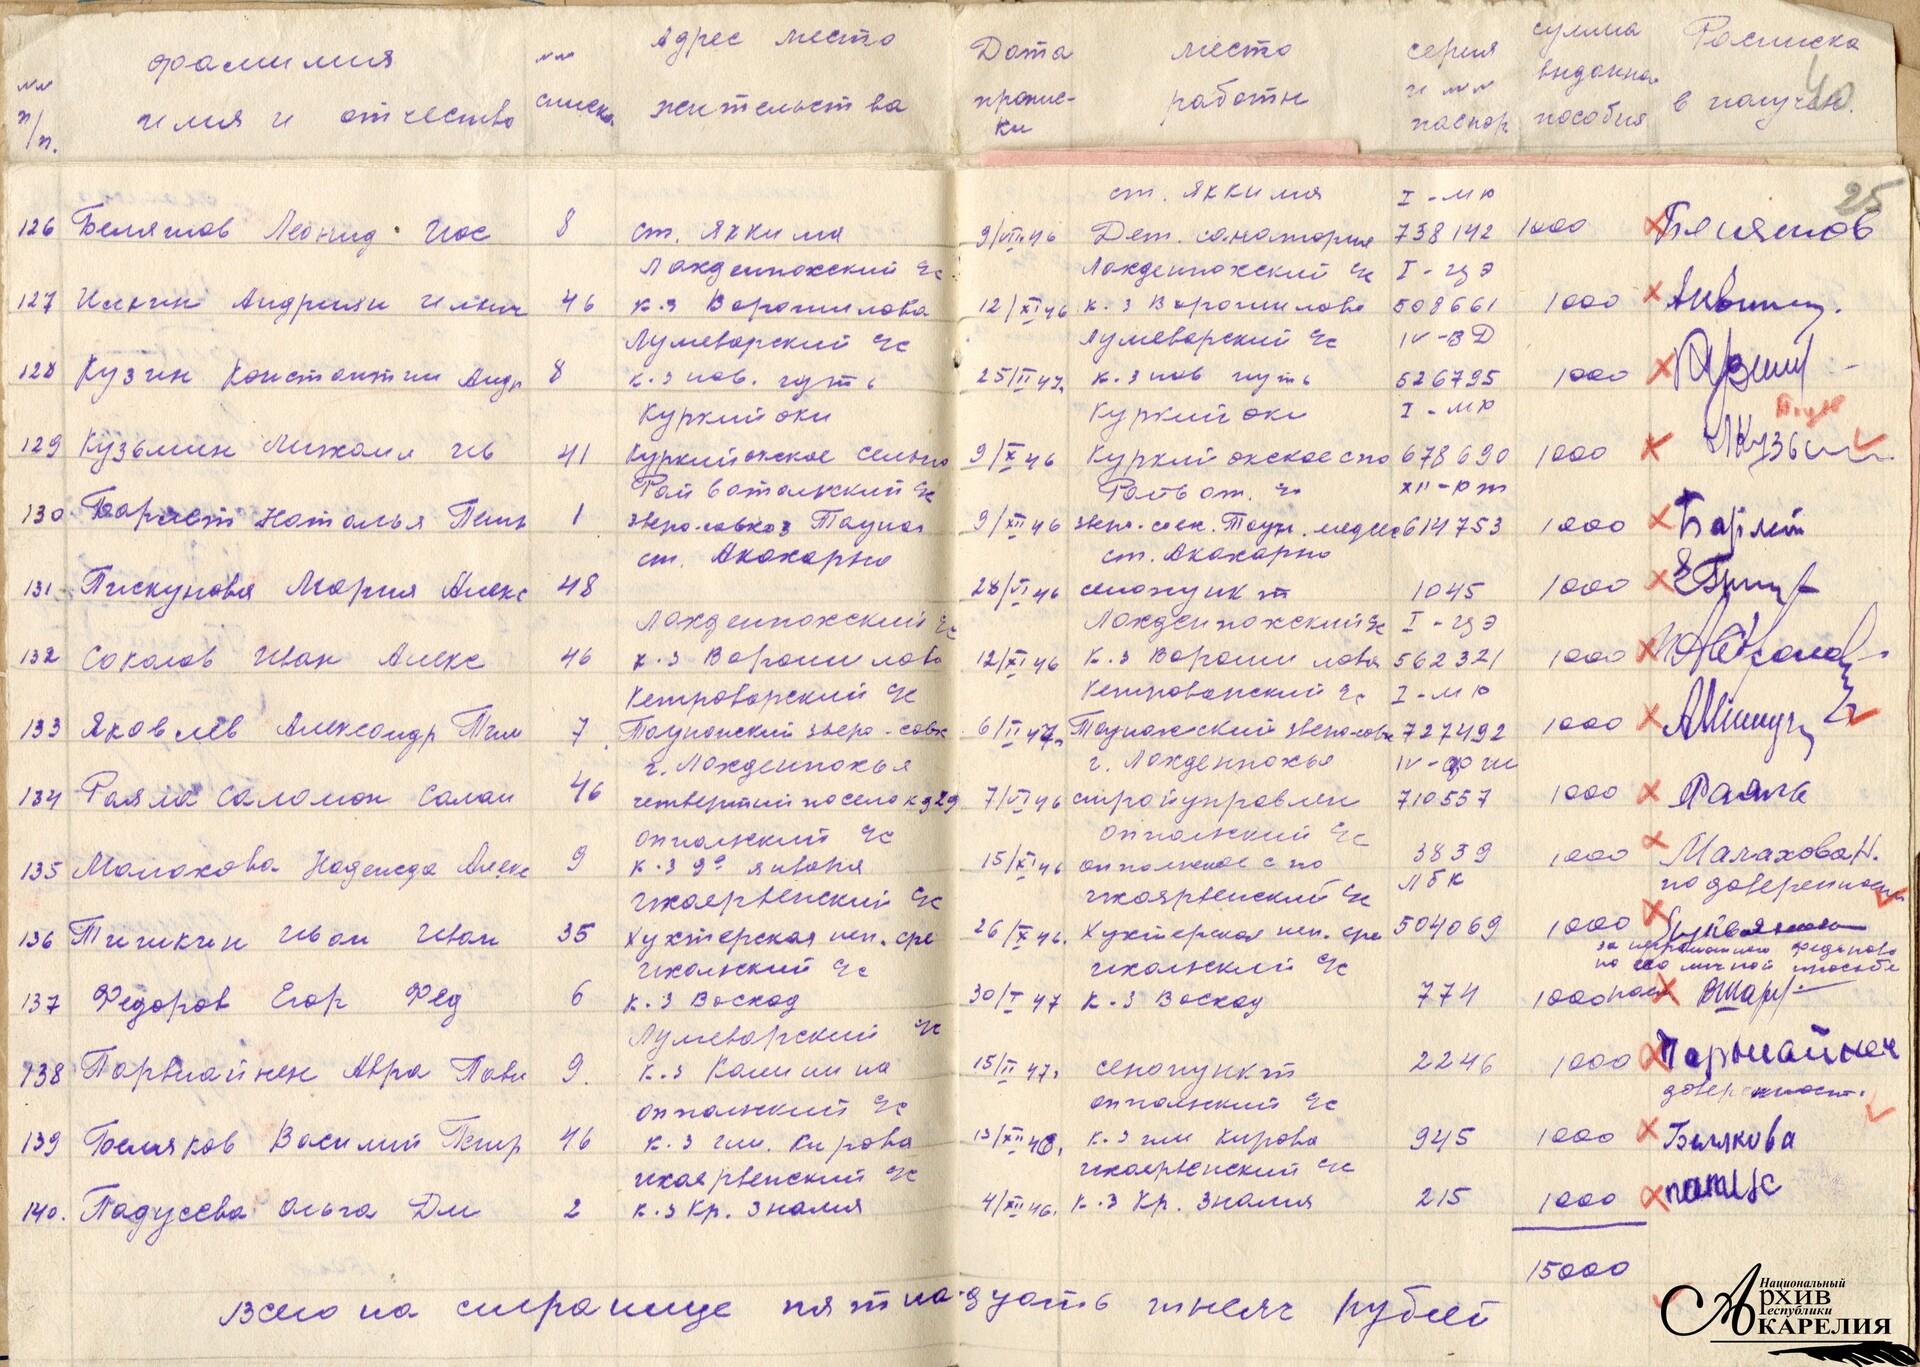 №№ п/п. фамилия имя и отчество №№ списка Адрес место жительства Дата пропис-ки место работы серия и №№ паспор сумма выданного пособия Расписка в получен.
40
25
ст. Яккима I-мю
126 Беляшов Леонид Иос 8 ст. Яккима 9/VII 46 Дет. санатория 738142 1000 Беляшов
Лахденпохский с/с Лахденпохский с/с I-цэ
127 Илькин Андриян Ильич 46 к.з Ворошилова 12/XI 46 к.з Ворошилова 508661 1000
Лумеварский с/с Лумиварский с/с IV-ВД
128 Кузин Константин Андр 8 к.з нов. путь 25/II 47. к.з нов путь 626795 1000
Куркийоки Куркийоки I-мю
129 Кузьмин Михаил Ив 41 Куркийокское сельпо 9/X 46 Куркийокское спо 678690 1000 Кузьм
Райватальский с/с Райват. с/с XII-ют
130 Барлет Наталья Петр 1 зверо-совхоз Таунан 9/XII 46 зверо-совх. Таун. 614753 1000 Барлет
ст. Акахарью ст. Акахарью
131 Пискунова Мария Алекс 48 28/VI 46 сенопункт 1045 1000
Лахденпохский с/с Лахденпохский с/с I-цэ
132 Соколов Иван Алекс 46 к.з Ворошилова 12/XI 46 к.з Ворошилова 562321 1000
Кетроварский с/с Кетроварский с/с I-мю
133 Яковлев Александр Тим 7 Таунанский зверо-совх 6/II 47. Таунанский зверо-совх 727492 1000
г. Лахденпохья г. Лахденпохья
134 Раяла Саломон Салам 46 четвертый поселок д 29 7/VI 46 стройуправлен 710557 1000 Раяла
Оппольский с/с Оппольский с/с
135 Малахова Надежда Алекс 9 к.з 9е января 15/XI 46 Оппольское спо 3839 1000 Малахова Н.
по доверенности
Ихаярвенский с/с Ихаярвенский с/с ЛБК
136 Тишкин Иван Иван 35 Хухтерская неп. сре 26/X 46. Хухтерская неп. сре 504069 1000
за неграмотного Федорова
по его личной просьбе
Ихольский с/с Ихольский с/с
137 Федоров Егор Фед 6 к.з Восход 30/I 47 к.з Восход 774 1000
Лумеварский с/с
138 Парвиайнен Авра Павл 9. к.з Калинина 15/II 47. сенопункт 2246 1000 Парвиайнен
доверенност.
Оппольский с/с Оппольский с/с
139 Беляков Василий Петр 46 к.з им. Кирова 13/XII 46. к.з им Кирова 945 1000 Белякова
Ихаярвенский с/с Ихаярвенский с/с
140. Падусева Ольга Дм 2 к.з Кр. Знамя 4/XII 46. к.з Кр. Знамя 215 1000
15000
Всего на странице пятнадцать тысяч рублей
Национальный
Архив
Республики
Карелия